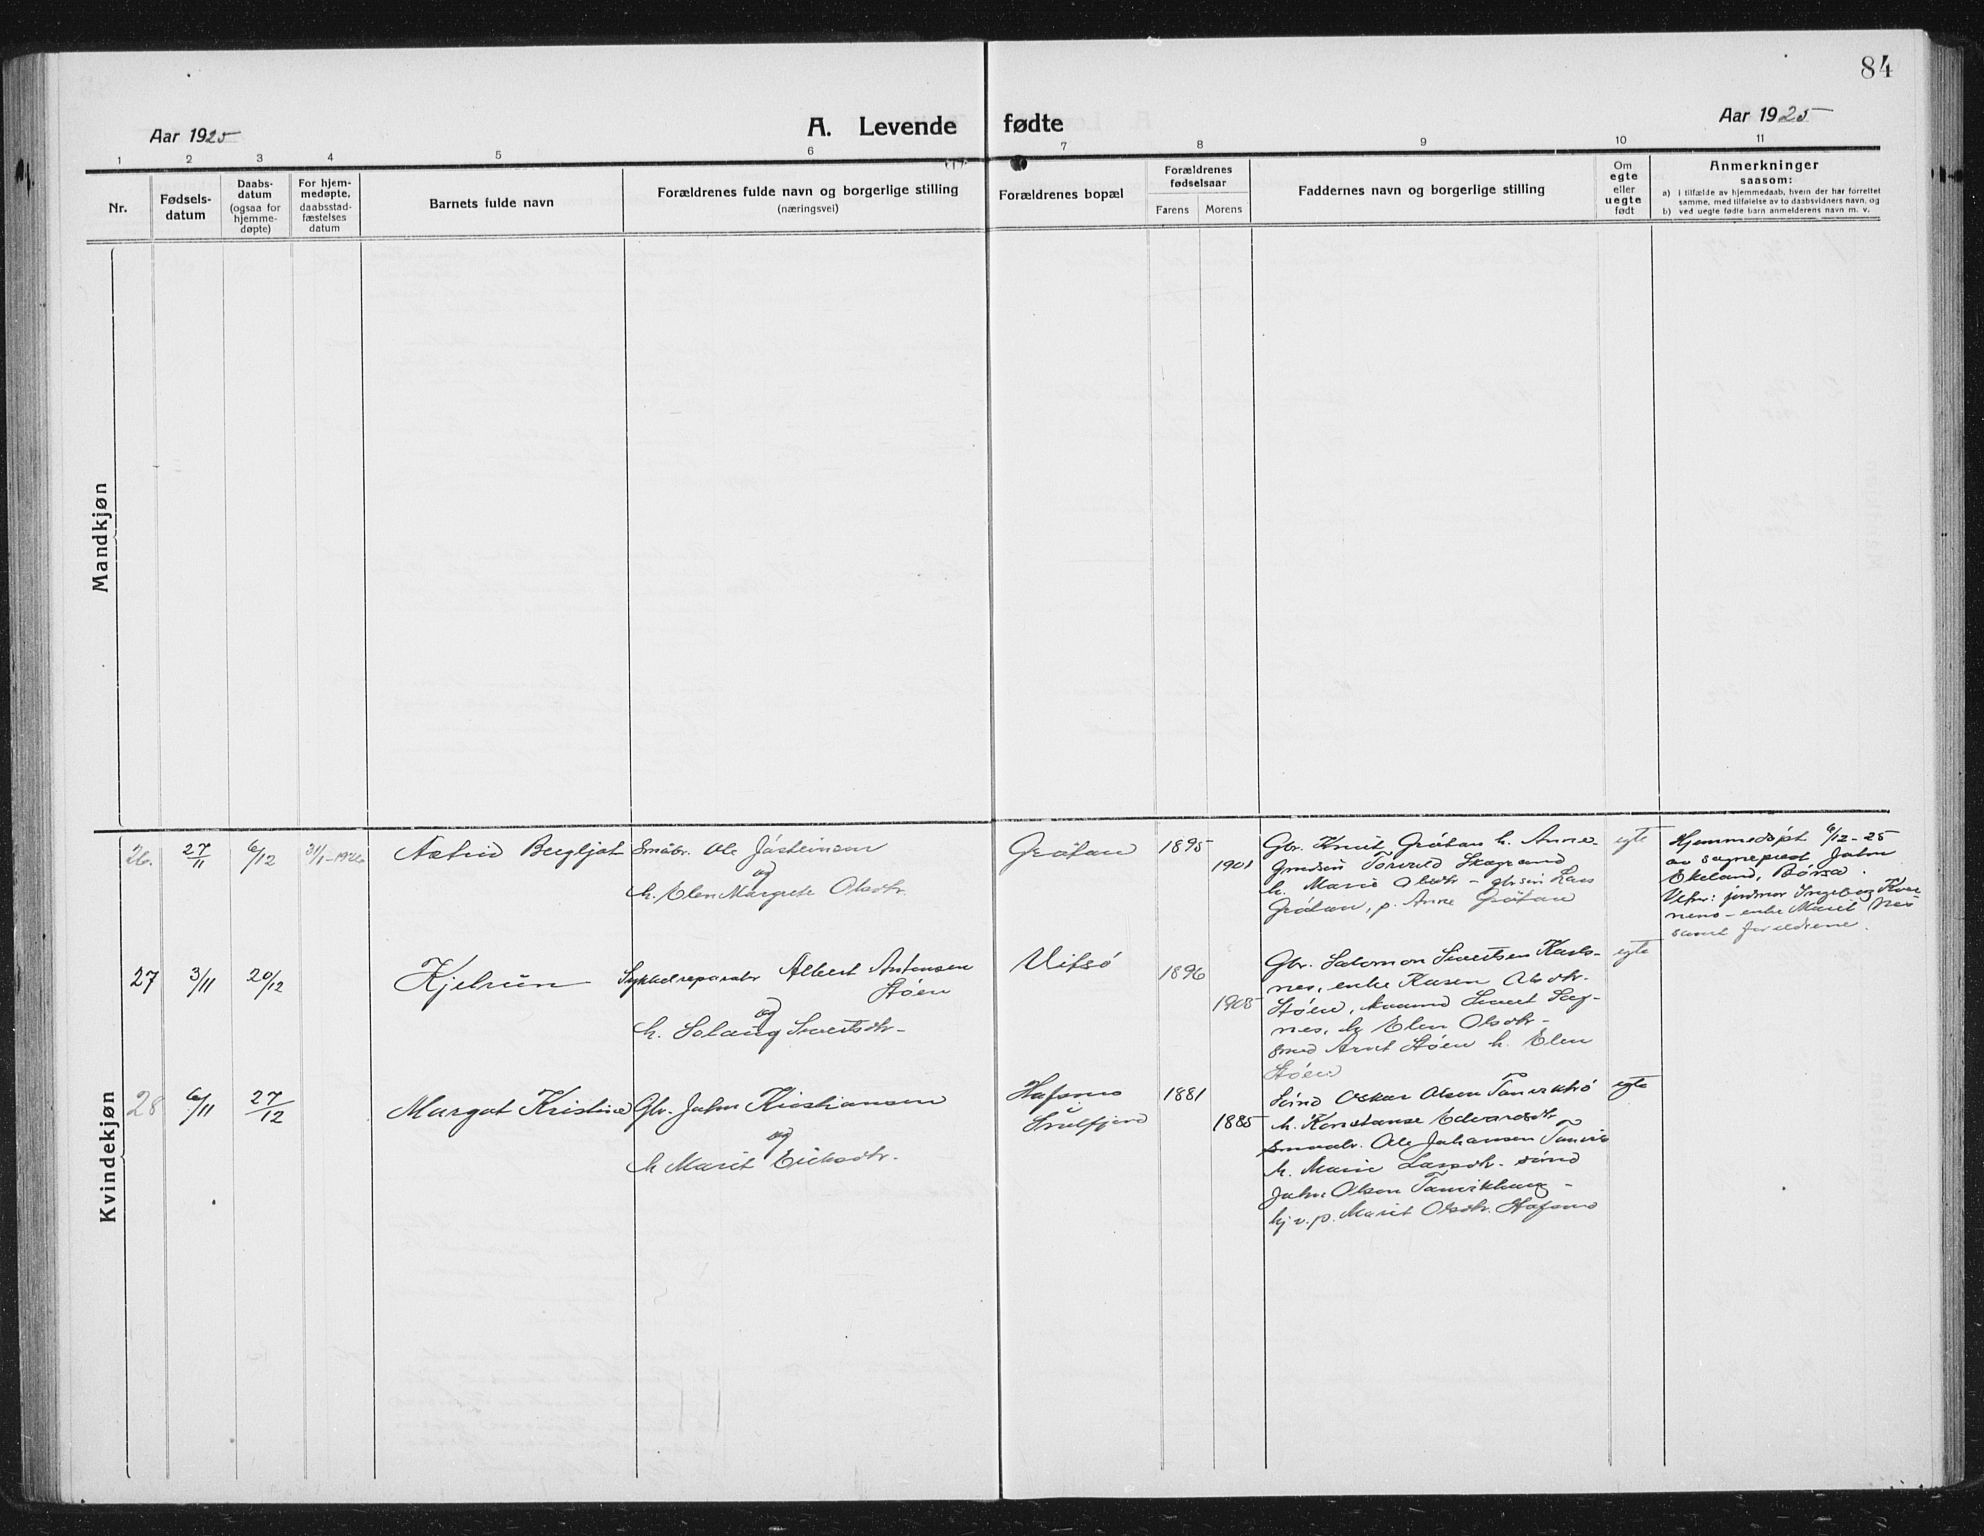 84
Aar 1925
A. Levende fødte
Aar 1925
1 2 3 4 5 6 7 8 9 10 11
Nr.
Fødsels-
datum
Daabs-
datum
(ogsaa for
hjemme-
døpte)
For hjem-
medøpte,
daabsstad-
fæstelses
datum
Barnets fulde navn
Forældrenes fulde navn og borgerlige stilling
(næringsvei)
Forældrenes bopæl
Forældrenes
fødselsaar
Farens Morens
Faddernes navn og borgerlige stilling
Om
egte
eller
uegte
født
Anmerkninger
saasom:
a) I tilfælde av hjemmedaab, hvem der har forrettet
samme, med tilføielse av to daabsvidners navn, og
b) ved uegte fødte barn anmelderens navn m. v.
Mandkjøn
Kvindekjøn
26. 27/11 6/12 31/1-1926 Astrid Bergljot
Småbr. Ole Jósteinsen
og
h. Elen Margrete Olsdtr.
Grötan
1895
1901
Gbr. Knut Grötan h. Anne-
Torvald Skagrand
h. Marie Olsdtr - gbrsøn Lars
Grötan, p. Anne Grötan
egte
Hjemmedøpt 6/12-25
av sogneprest John
Ekeland, Börsa.
Vitner: jordmor Ingeborg
- enke Marit
samt foreldrene.
27 3/11 20/12 Kjelrun
Albert Antonsen
Støen
og
h. Solaug Sivertsdtr-
Vitsö
1896
1905
Gbr. Salomon Sivertsen
nes, enke Karen Olsdtr.
Støen, Sivert Sag-
nes, h. Elen Olsdtr-
Smed Arnt Støen h. Elen
Støen
egte
28 6/11 27/12 Margot Kristine
Gbr. John Kristiansen
og
h Marit Eriksdtr.
Hafsmo
i
Snilfjord
1881
1885
Oskar Olsen
h. Konstanse Edvardsdtr
Småbr. Ole Johansen
h. Marie Larsdtr.
John Olsen Tanvikhaug -
p. Marit Olsdtr. Hafsmo
egte